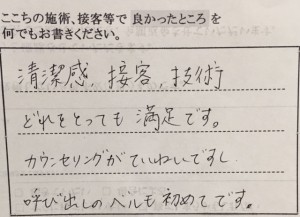 ここちの施術、接客等で 良かったところ を
何でもお書きください。
清潔感、接客、技術
どれをとっても 満足です。
カウンセリングがていねいですし
呼び出しのベルも初めてです。